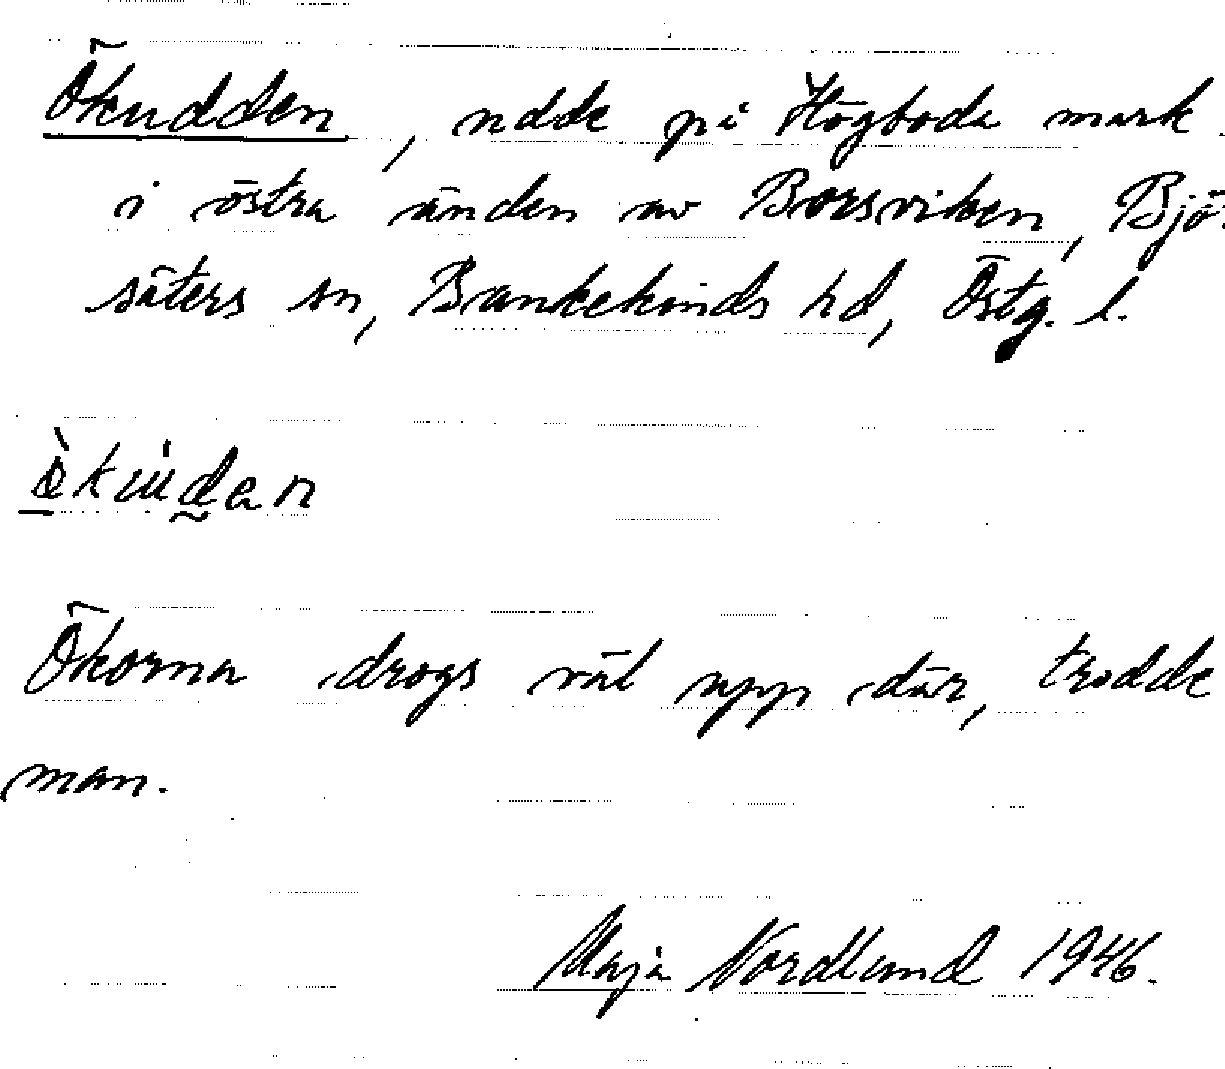 Ökudden, udde på Högboda mark
i östra änden av Borsviken, Bjö-
säters sn, Bankekinds hd, Östg. l.
Ökorna drogs väl upp där, trodde
man.
Maja Nordlund 1946.